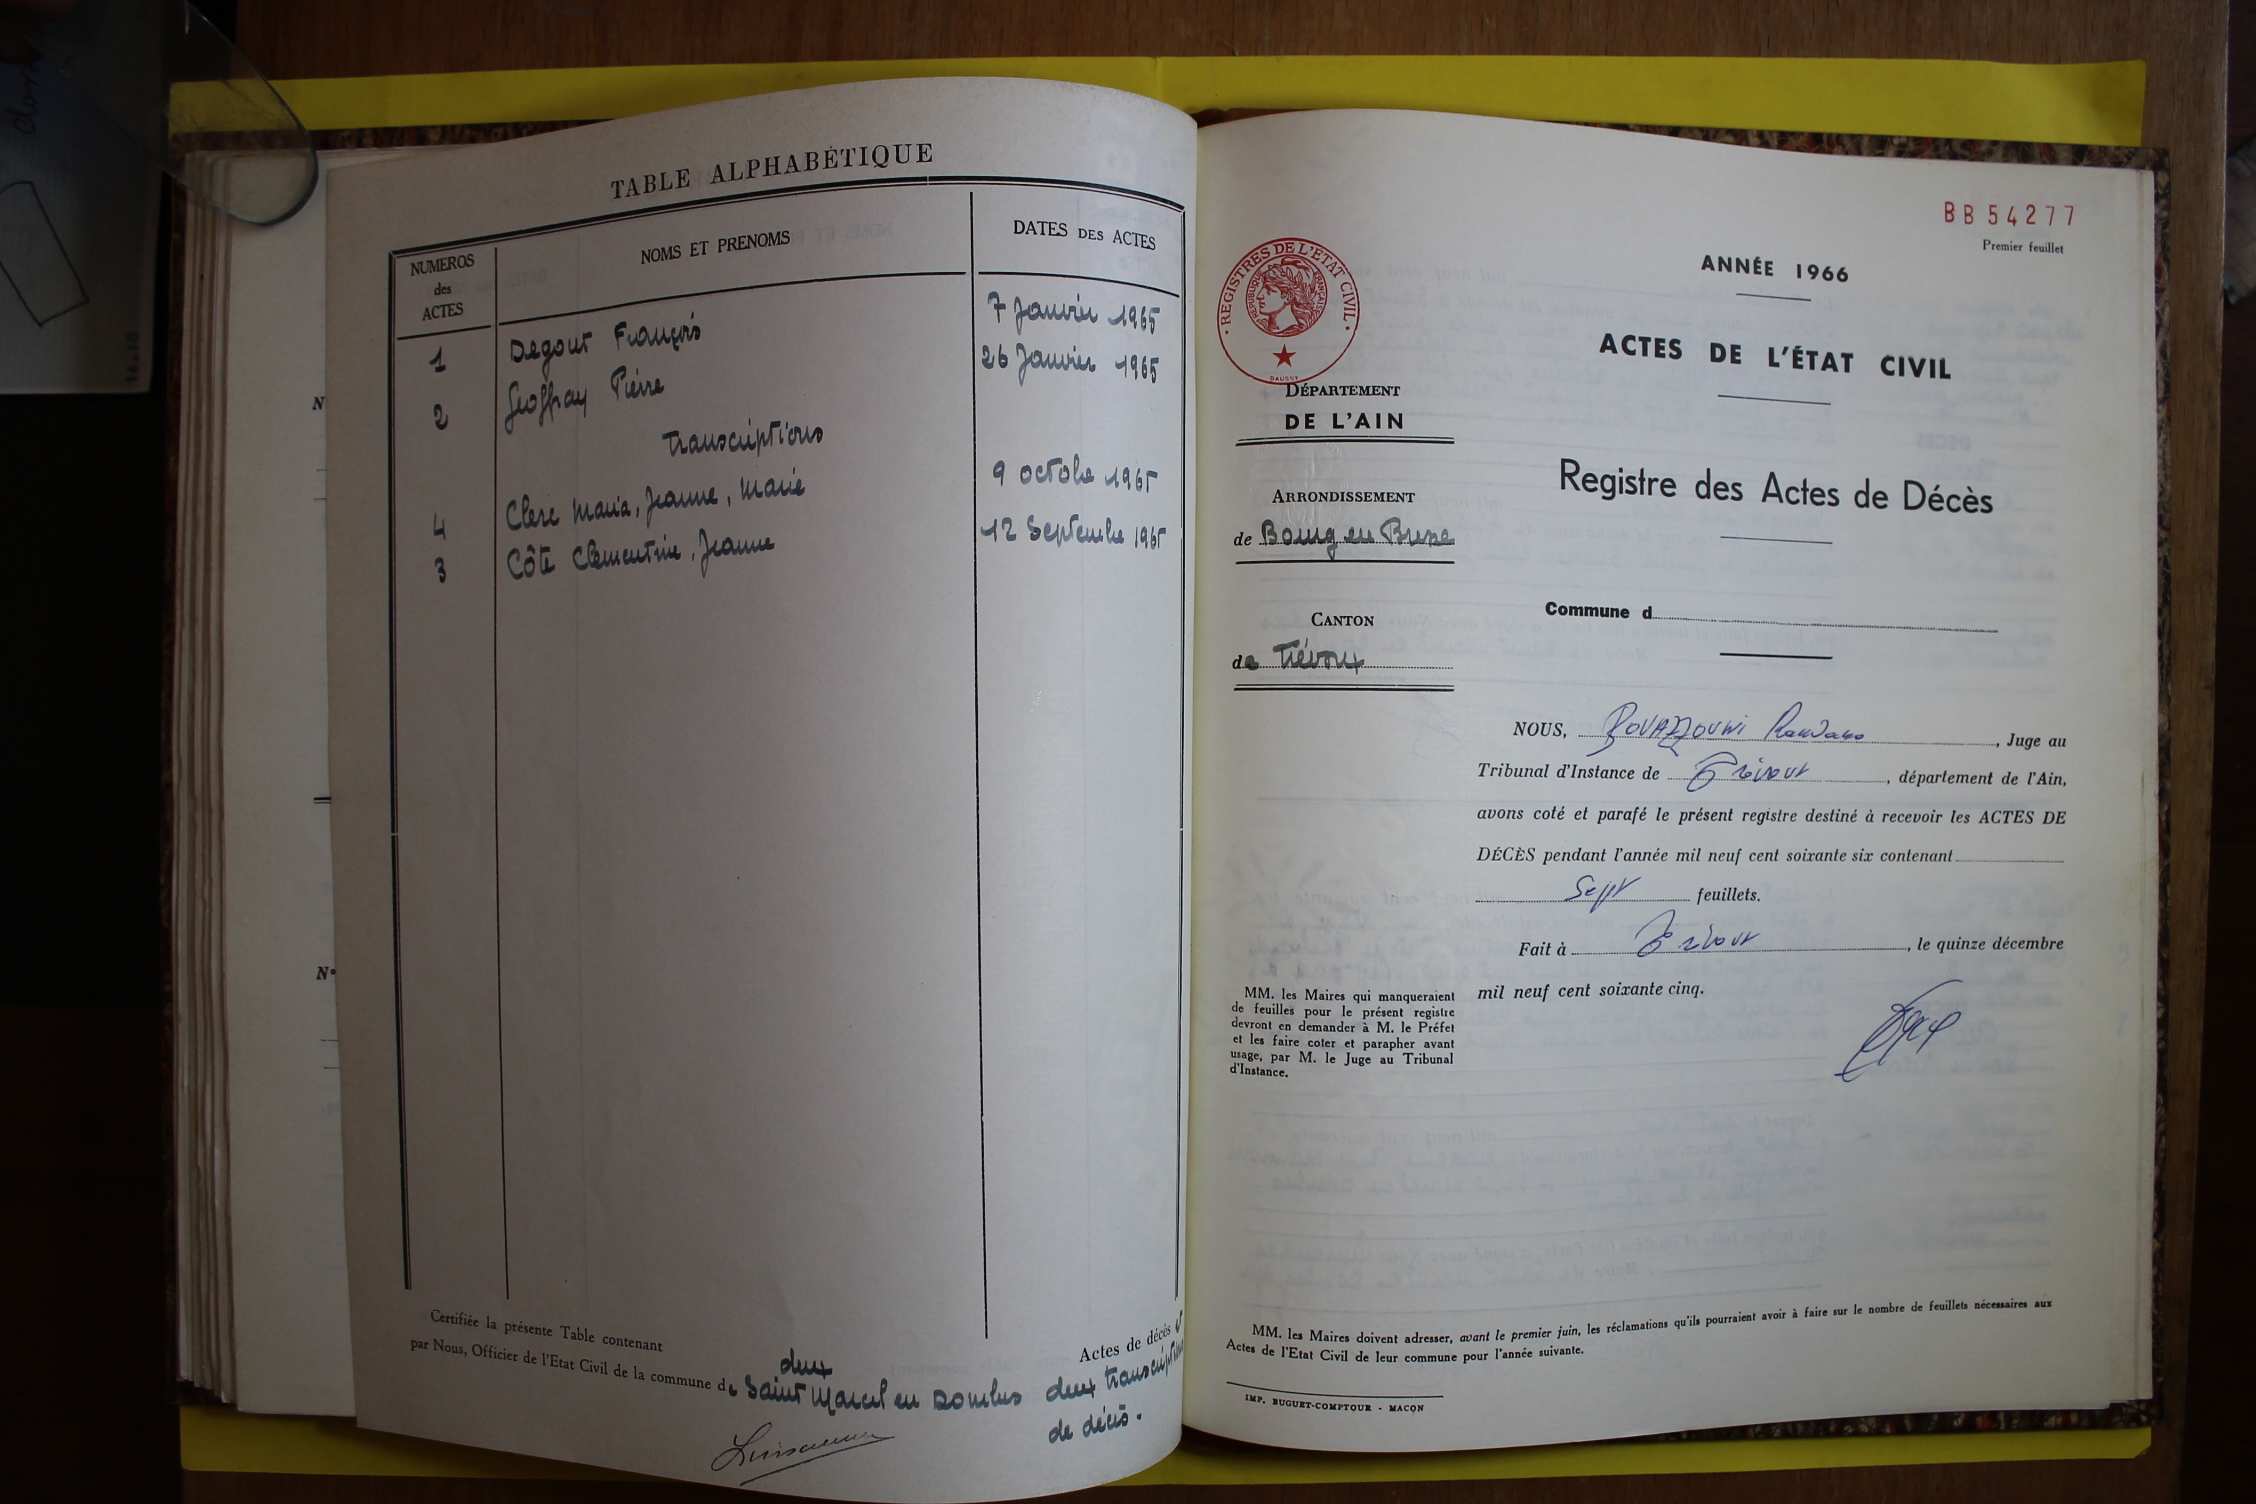 TABLE ALPHABÉTIQUE
NUMEROS
des
ACTES
NOMS ET PRENOMS
DATES DES ACTES
1 Degout François 7 Janvier 1965
2 Geoffray Pierre 26 Janvier 1965
transcriptions
4 Clerc Maria, Jeanne, Marie 9 octobre 1965
3 Côte Clémentine, Jeanne 12 Septembre 1965
Certifiée la présente Table contenant deux Actes de décès et
par Nous, Officier de l'Etat Civil de la commune de Saint Marcel en Dombes deux transcriptions
de décès.
N
N°
BB54277
Premier feuillet
REGISTRES DE L'ETAT CIVIL
RÉPUBLIQUE FRANÇAISE
DAUSSY
ANNÉE 1966
ACTES DE L'ÉTAT CIVIL
DÉPARTEMENT
DE L'AIN
Registre des Actes de Décès
ARRONDISSEMENT
de Bourg en Bresse
Commune d
CANTON
de Trévoux
NOUS, BOUAZZOUNI , Juge au
Tribunal d'Instance de Trévoux , département de l'Ain,
avons coté et parafé le présent registre destiné à recevoir les ACTES DE
DÉCÈS pendant l'année mil neuf cent soixante six contenant
Sept feuillets.
Fait à Trévoux , le quinze décembre
mil neuf cent soixante cinq.
MM. les Maires qui manqueraient
de feuilles pour le présent registre
devront en demander à M. le Préfet
et les faire coter et parapher avant
usage, par M. le Juge au Tribunal
d'Instance.
MM. les Maires doivent adresser, avant le premier juin, les réclamations qu'ils pourraient avoir à faire sur le nombre de feuillets nécessaires aux
Actes de l'Etat Civil de leur commune pour l'année suivante.
IMP. BUGUET-COMPTOUR - MACON